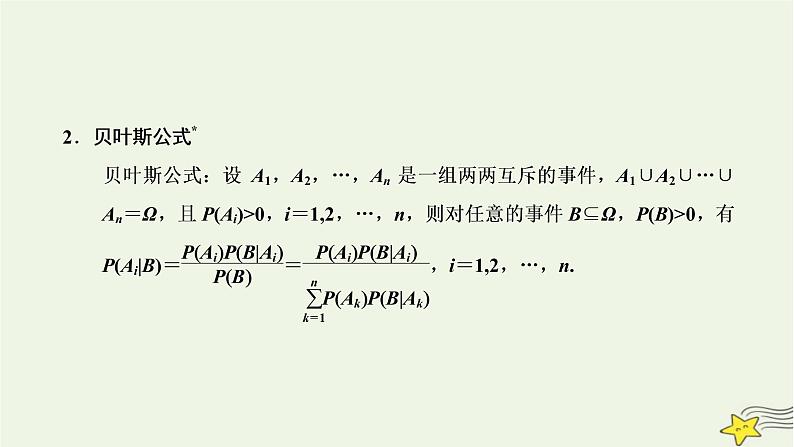 2．贝叶斯公式*
贝叶斯公式：设 A₁，A₂，…，Aₙ 是一组两两互斥的事件，A₁∪A₂∪…∪
Aₙ＝Ω，且 P(Aᵢ)>0，i＝1,2，…，n，则对任意的事件 B⊆Ω，P(B)>0，有
P(Aᵢ|B)＝P(Aᵢ)P(B|Aᵢ)/P(B)＝P(Aᵢ)P(B|Aᵢ)/∑ₖ₌₁ⁿP(Aₖ)P(B|Aₖ)，i＝1,2，…，n.